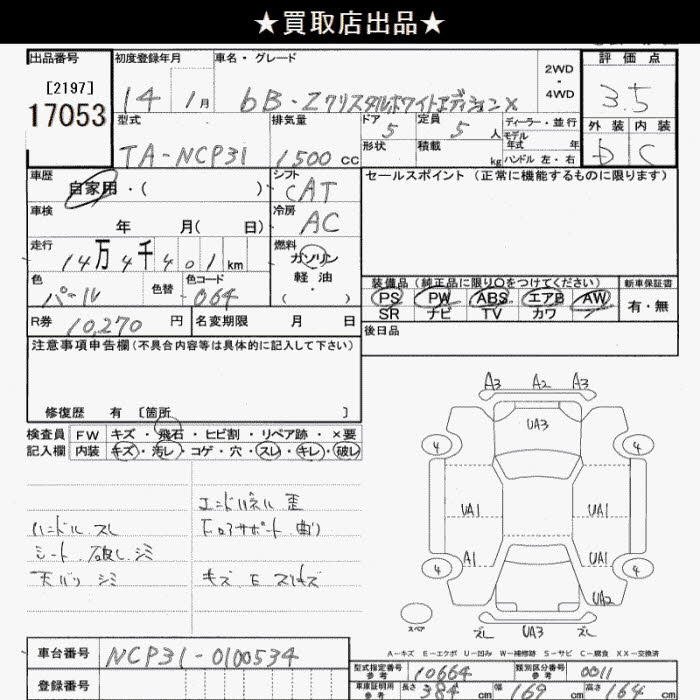 ★買取店出品★
出品番号 初度登録年月 車名・グレード 2WD・4WD 評価点
[2197]
17053 14年 1月 bB・ZクリスタルホワイトエディションX 3.5
型式 排気量 ドア 定員 ディーラー・並行 外装 内装
TA-NCP31 1500 CC 5 5人 モデル年式 年 D C
形状 積載 kg ハンドル 左・右
車歴 シフト セールスポイント (正常に機能するものに限ります)
自家用・( ) CAT
車検 冷房
年 月( 日) AC
走行 燃料
14万4千401km ガソリン・軽油・( )
色 色替 色コード 装備品 (純正品に限り○をつけてください) 新車保証書
パール 064 PS PW ABS エアB AW 有・無
SR ナビ TV カワ
R券 10,270円 名変期限 月 日 後日品
注意事項申告欄(不具合内容等は具体的に記入して下さい)
修復歴 有 [箇所 ]
検査員 FW キズ・飛石・ヒビ割・リペア跡・×要
記入欄 内装 キズ・汚レ・コゲ・穴・スレ・キレ・破レ
エンドパネル 歪
ハンドル スレ
コアサポート 曲り
シート 破レ シミ
天バリ シミ
キズ E スリキズ
A3 A2 A3
UA3
4 4
UA1 UA1
A1 UA1
4 4
UA2
スペア
ズレ UA3 ズレ
A-キズ E-エクボ U-凹み W-補修跡 S-サビ C-腐食 XX-交換済
車台番号 NCP31-0100534
型式指定番号 参考 10664 類別区分番号 参考 0011
登録番号
車庫証明用 参考 長さ 384cm 幅 169cm 高さ 164cm